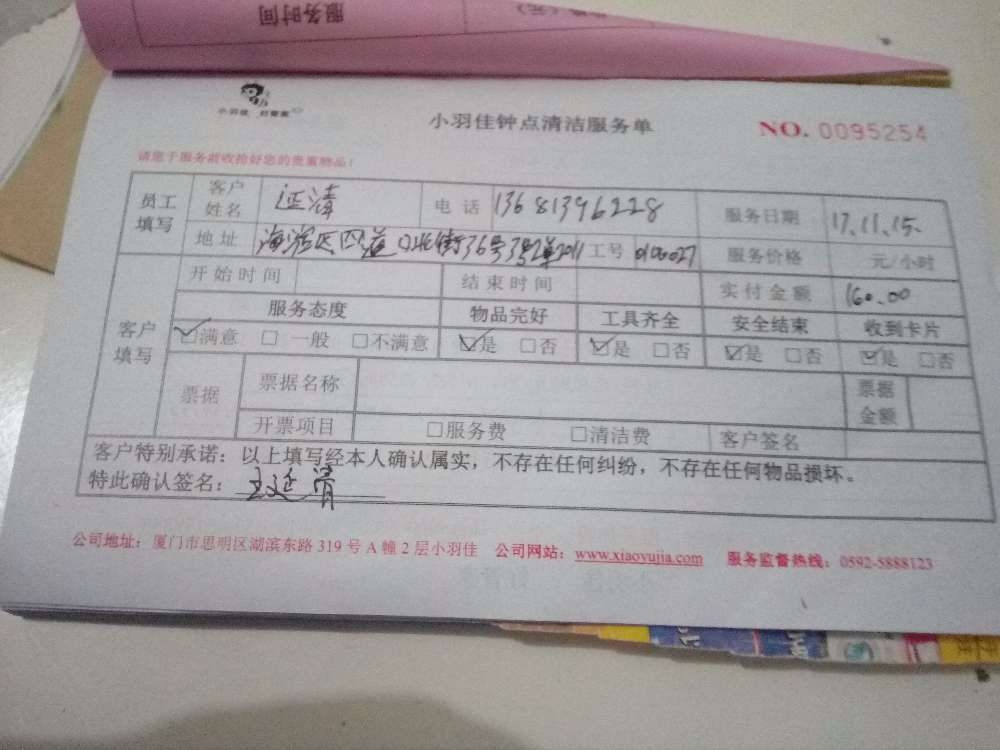 服务时间
小羽佳 好管家
小羽佳钟点清洁服务单
NO. 0095254
请您于服务前收拾好您的贵重物品！
员工填写 客户姓名 延清 电话 13681396228 服务日期 17.11.15.
地址 海淀区四道口北街36号 工号 0100027 服务价格 元/小时
客户填写 开始时间 结束时间 实付金额 160.00
服务态度 物品完好 工具齐全 安全结束 收到卡片
满意 一般 不满意 是 否 是 否 是 否 是 否
票据 票据名称 票据金额
开票项目 服务费 清洁费 客户签名
客户特别承诺：以上填写经本人确认属实，不存在任何纠纷，不存在任何物品损坏。
特此确认签名：王延清
公司地址：厦门市思明区湖滨东路 319 号 A 幢 2 层小羽佳 公司网站：www.xiaoyujia.com 服务监督热线：0592-5888123